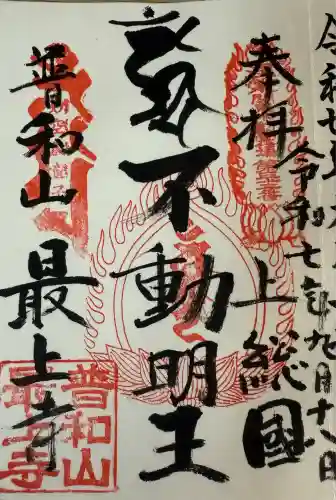 令和七年
令和七年九月十八日
奉拝
上総國
不動明王
普和山
最上寺
普和山
最上寺